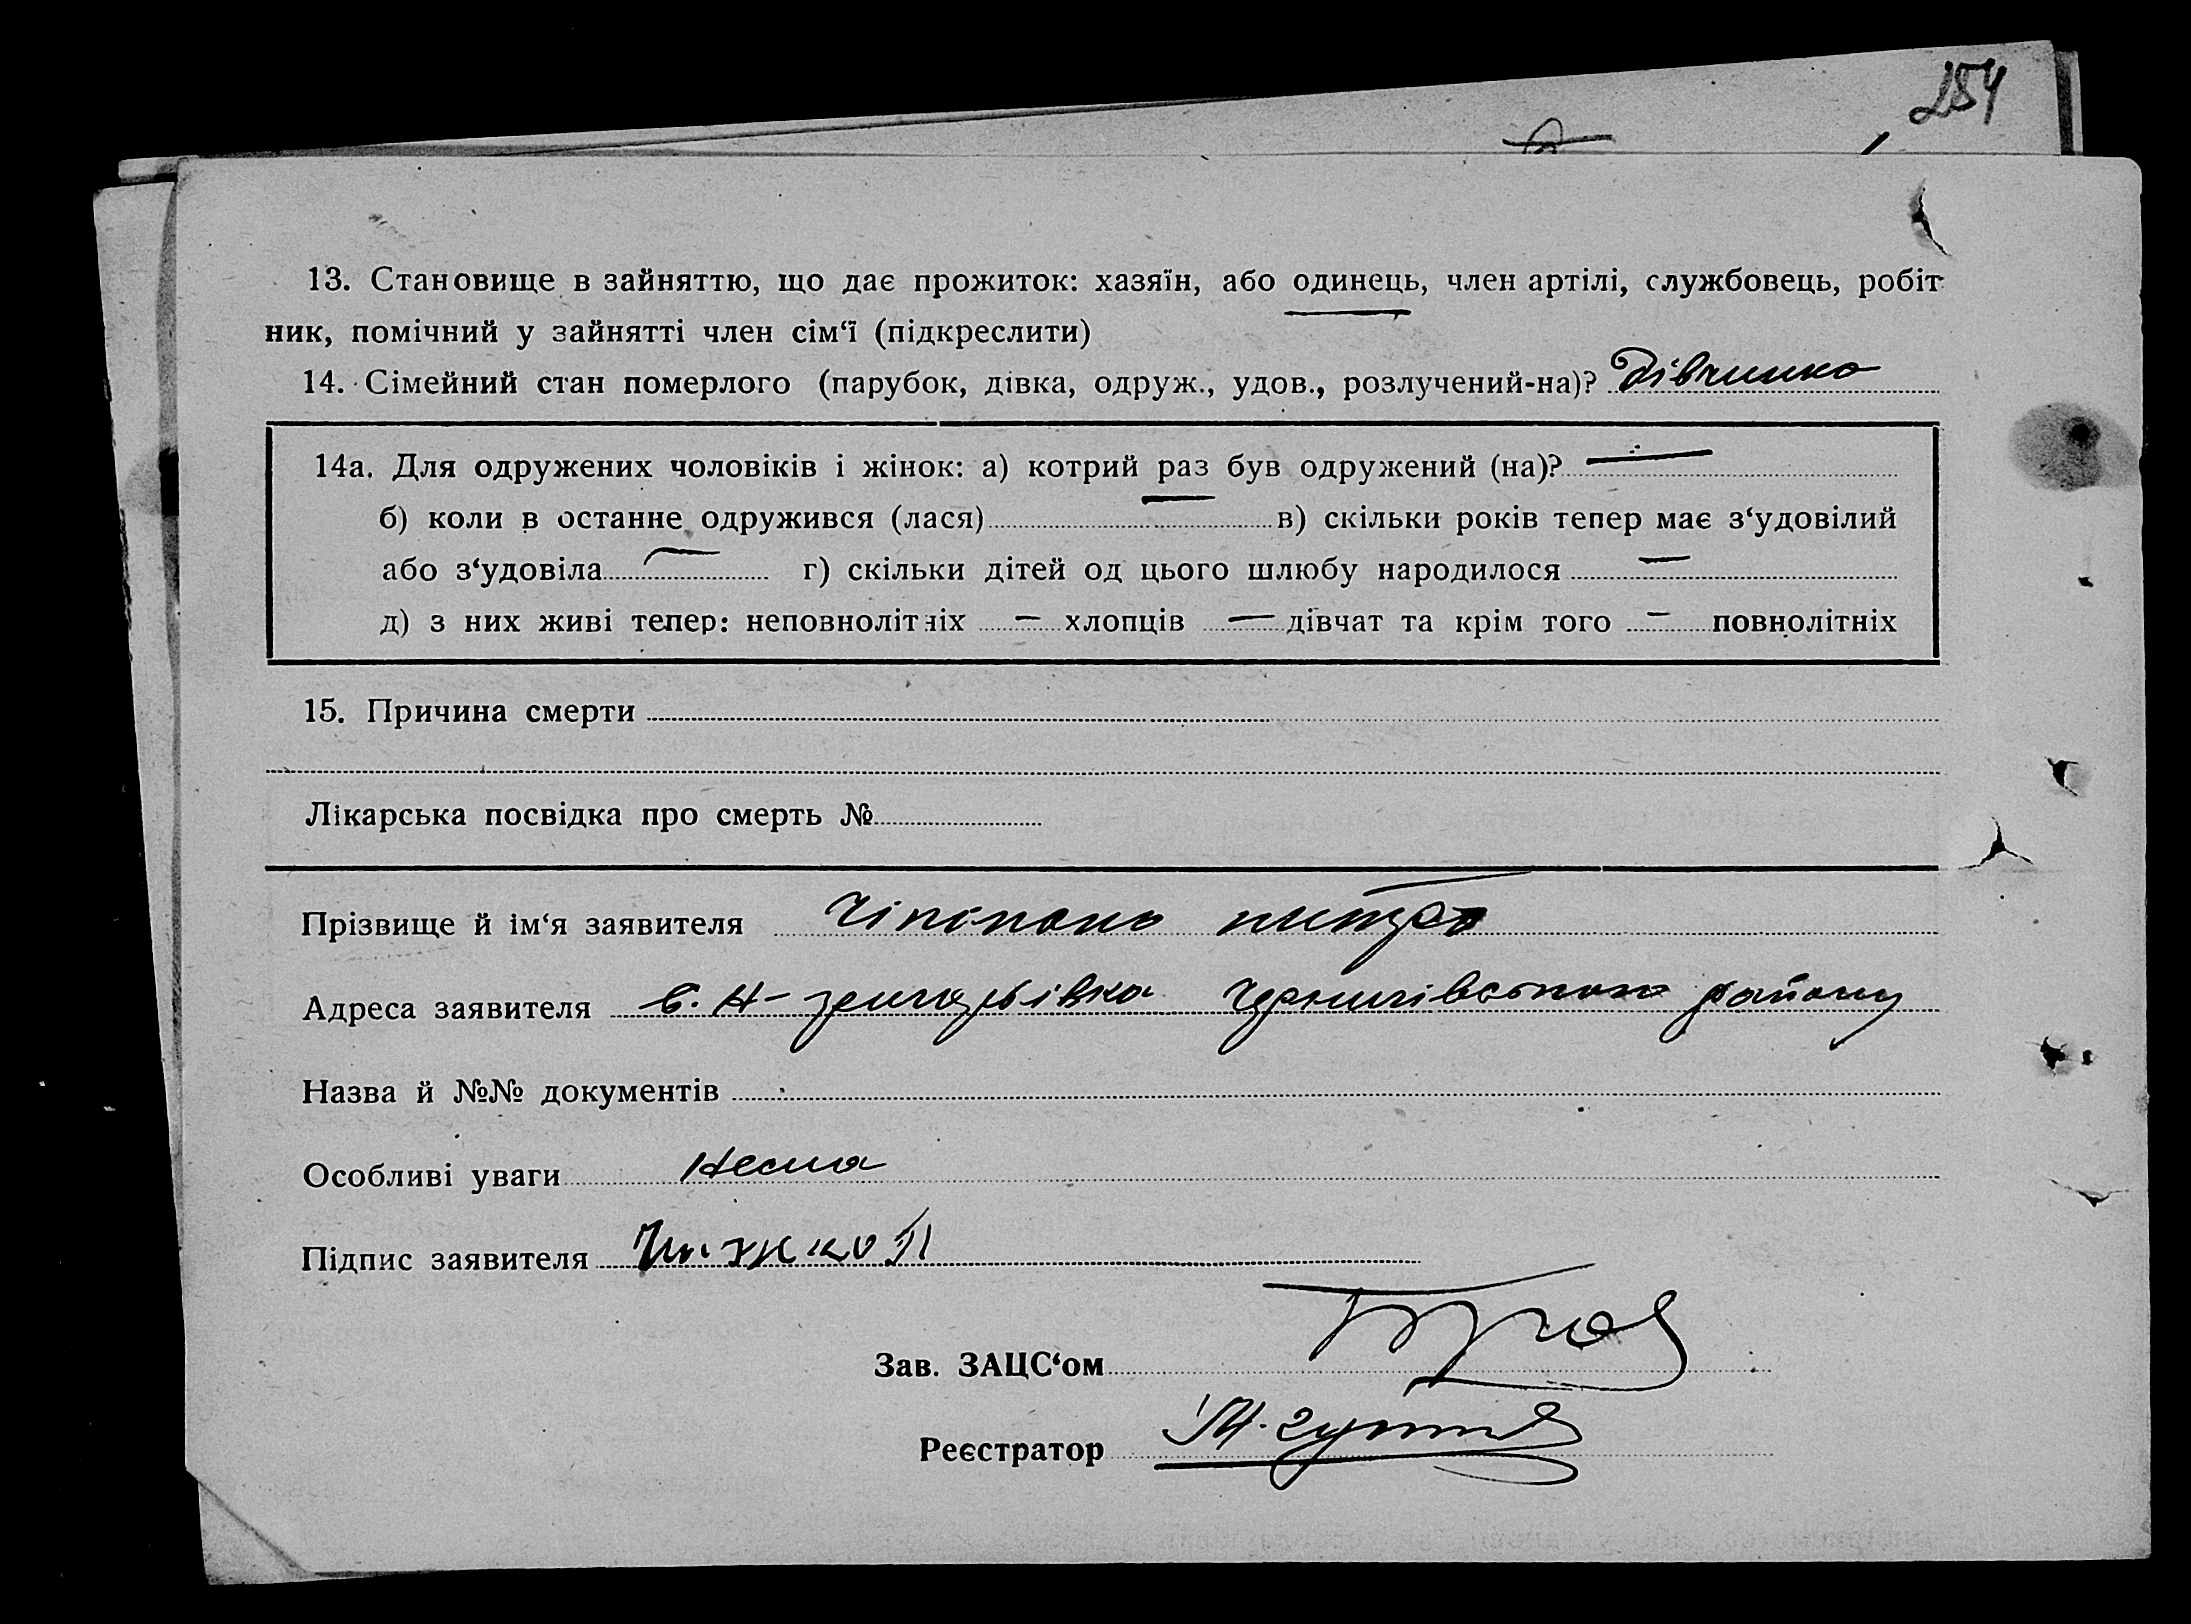 254
13. Становище в зайняттю, що дає прожиток: хазяїн, або одинець, член артілі, службовець, робіт-
ник, помічний у зайнятті член сім‘ї (підкреслити)
14. Сімейний стан померлого (парубок, дівка, одруж., удов., розлучений-на)? дівчинка
14а. Для одружених чоловіків і жінок: а) котрий раз був одружений (на)? —
б) коли в останнє одружився (лася) — в) скільки років тепер має з‘удовілий
або з‘удовіла — г) скільки дітей од цього шлюбу народилося —
д) з них живі тепер: неповнолітніх — хлопців — дівчат та крім того — повнолітніх
15. Причина смерти
Лікарська посвідка про смерть №
Прізвище й ім‘я заявителя
Адреса заявителя с. Н- Чернигівського району
Назва й №№ документів
Особливі уваги Нема
Підпис заявителя
Зав. ЗАЦС‘ом
Реєстратор